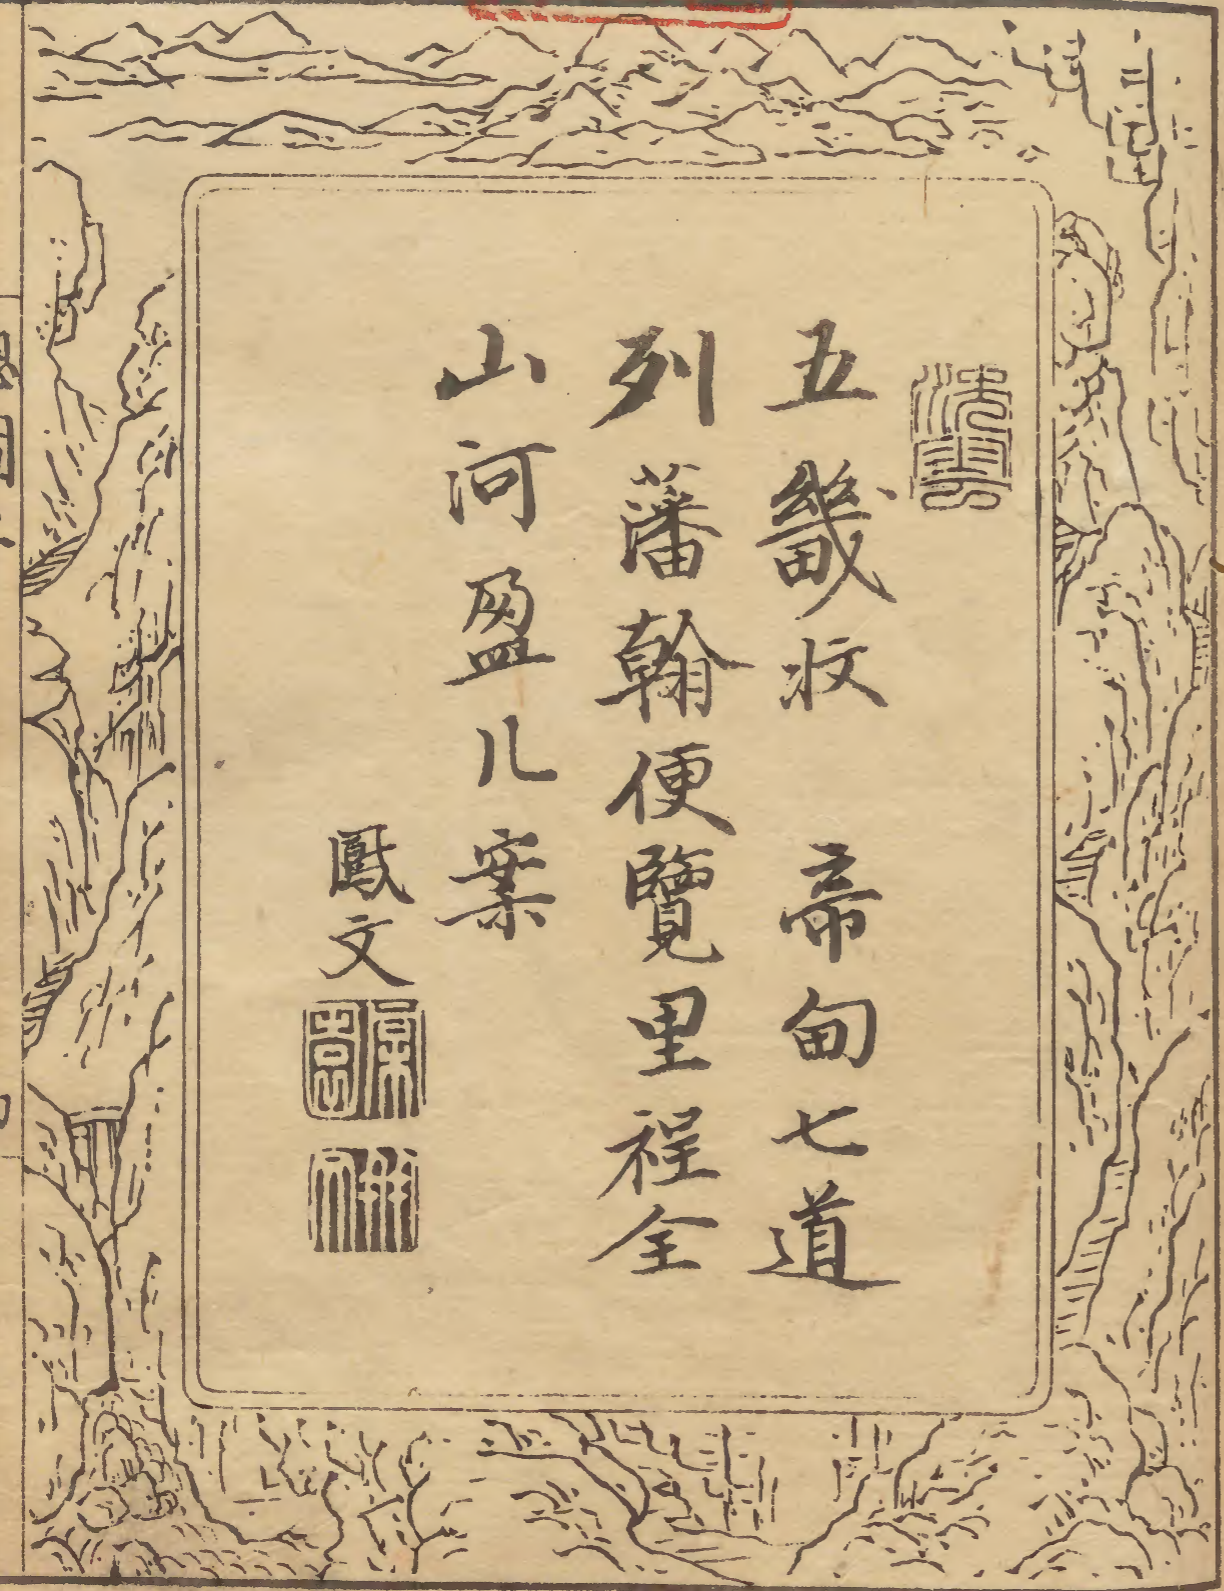 五畿收　帝甸七道
列藩翰便覽里程全
山河盈几案
鳳文